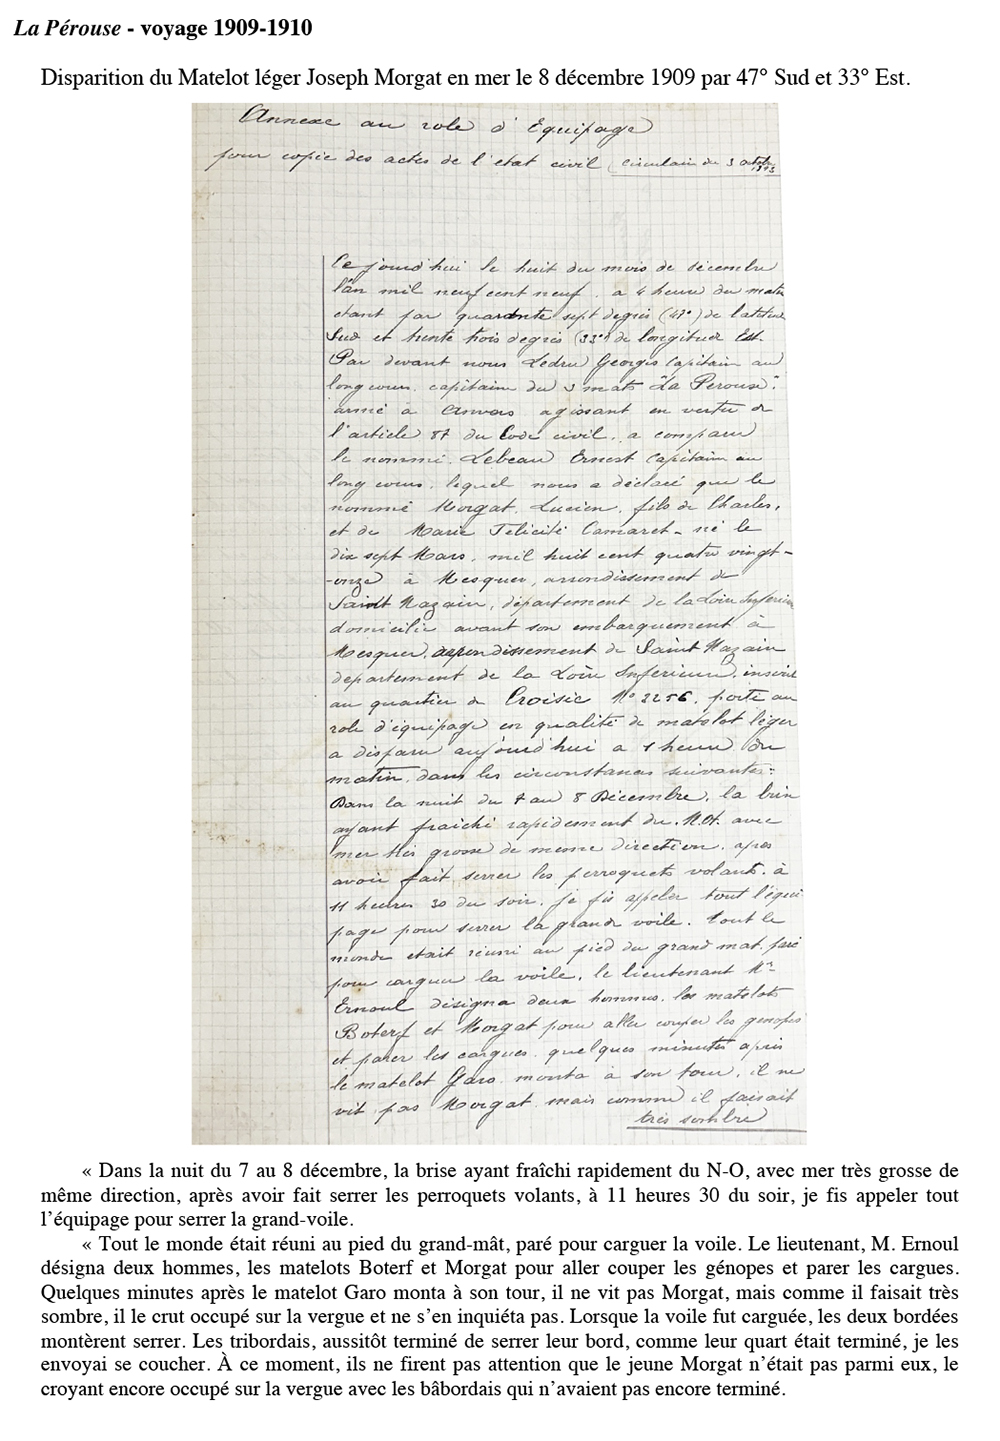 La Pérouse - voyage 1909-1910
Disparition du Matelot léger Joseph Morgat en mer le 8 décembre 1909 par 47° Sud et 33° Est.
Annexe au role d'Equipage
pour copie des actes de l'etat civil (circulaire du 3 octobre
Ce jourd'hui le huit du mois de décembre
l'an mil neuf cent neuf. a 4 heure du matin
etant par quarante sept degrés (47°) de latitude
Sud et trente trois degrés (33°) de longitude Est.
Par devant nous Ledru Georges Capitain au
long cours, capitaine du 3 mats "La Perouse".
armé à Anvers agissant en vertu de
l'article 87 du Code civil, a comparu
le nommé. Lebeau Ernest Capitain au
long cours, lequel nous a déclaré que le
nommé Morgat. Lucien, fils de Charles,
et de Marie Felicité Camaret - né le
dix sept Mars, mil huit cent quatre vingt-
-onze à Mesquer, arrondissement de
Saint Nazain, département de la Loire Inferieure
domicilié avant son embarquement à
Mesquer, arrondissement de Saint Nazain
departement de la Loire Inferieure, inscrit
au quartier de Croisic N° 2256, porté au
role d'équipage en qualité de matelot léger
a disparu aujourd'hui a 1 heure du
matin, dans les circonstances suivantes:
Dans la nuit du 7 au 8 Décembre, la brise
ayant fraichi rapidement du. N.O. avec
mer très grosse de meme direction. apres
avoir fait serrer les perroquets volants. à
11 heures 30 du soir, je fis appeler tout l'équi
page pour serrer la grand voile. Tout le
monde etait réuni au pied du grand mat. paré
pour carguer la voile, le lieutenant Mr
Ernoul désigna deux hommes. les matelots
Boterf et Morgat pour aller couper les genopes
et parer les cargues. quelques minutes après
le matelot Garo. monta à son tour, il ne
vit pas Morgat. mais comme il faisait
très sombre
« Dans la nuit du 7 au 8 décembre, la brise ayant fraîchi rapidement du N-O, avec mer très grosse de
même direction, après avoir fait serrer les perroquets volants, à 11 heures 30 du soir, je fis appeler tout
l'équipage pour serrer la grand-voile.
« Tout le monde était réuni au pied du grand-mât, paré pour carguer la voile. Le lieutenant, M. Ernoul
désigna deux hommes, les matelots Boterf et Morgat pour aller couper les génopes et parer les cargues.
Quelques minutes après le matelot Garo monta à son tour, il ne vit pas Morgat, mais comme il faisait très
sombre, il le crut occupé sur la vergue et ne s'en inquiéta pas. Lorsque la voile fut carguée, les deux bordées
montèrent serrer. Les tribordais, aussitôt terminé de serrer leur bord, comme leur quart était terminé, je les
envoyai se coucher. À ce moment, ils ne firent pas attention que le jeune Morgat n'était pas parmi eux, le
croyant encore occupé sur la vergue avec les bâbordais qui n'avaient pas encore terminé.